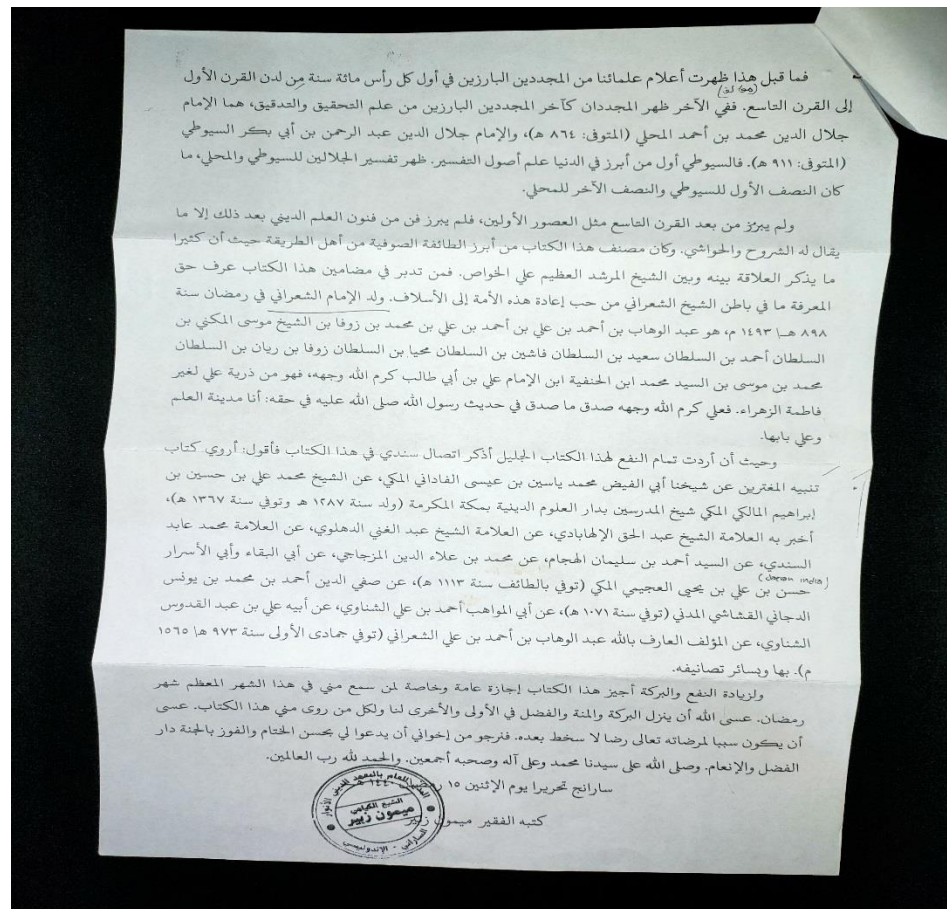 فما قبل هذا ظهرت أعلام علمائنا من المجددين البارزين في أول كل رأس مائة سنة من لدن القرن الأول
إلى القرن التاسع. ففي الآخر ظهر المجددان كآخر المجددين البارزين من علم التحقيق والتدقيق، هما الإمام
جلال الدين محمد بن أحمد المحلي (المتوفى: ٨٦٤ هـ)، والإمام جلال الدين عبد الرحمن بن أبي بكر السيوطي
(المتوفى: ٩١١ هـ). فالسيوطي أول من أبرز في الدنيا علم أصول التفسير. ظهر تفسير الجلالين للسيوطي والمحلي، ما
كان النصف الأول للسيوطي والنصف الآخر للمحلي.
ولم يبرز من بعد القرن التاسع مثل العصور الأولين، فلم يبرز فن من فنون العلم الديني بعد ذلك إلا ما
يقال له الشروح والحواشي. وكان مصنف هذا الكتاب من أبرز الطائفة الصوفية من أهل الطريقة حيث أن كثيرا
ما يذكر العلاقة بينه وبين الشيخ المرشد العظيم علي الخواص. فمن تدبر في مضامين هذا الكتاب عرف حق
المعرفة ما في باطن الشيخ الشعراني من حب إعادة هذه الأمة إلى الأسلاف. ولد الإمام الشعراني في رمضان سنة
٨٩٨ هـ/ ١٤٩٣ م، هو عبد الوهاب بن أحمد بن علي بن أحمد بن علي بن محمد بن زوفا بن الشيخ موسى المكني بن
السلطان أحمد بن السلطان سعيد بن السلطان فاشين بن السلطان محيا بن السلطان زوفا بن ريان بن السلطان
محمد بن موسى بن السيد محمد ابن الحنفية ابن الإمام علي بن أبي طالب كرم الله وجهه، فهو من ذرية علي لغير
فاطمة الزهراء. فعلي كرم الله وجهه صدق ما صدق في حديث رسول الله صلى الله عليه في حقه: أنا مدينة العلم
وعلي بابها.
وحيث أن أردت تمام النفع لهذا الكتاب الجليل أذكر اتصال سندي في هذا الكتاب فأقول: أروي كتاب
تنبيه المغترين عن شيخنا أبي الفيض محمد ياسين بن عيسى الفاداني المكي، عن الشيخ محمد علي بن حسين بن
إبراهيم المالكي المكي شيخ المدرسين بدار العلوم الدينية بمكة المكرمة (ولد سنة ١٢٨٧ هـ وتوفي سنة ١٣٦٧ هـ)،
أخبر به العلامة الشيخ عبد الحق الإلهابادي، عن العلامة الشيخ عبد الغني الدهلوي، عن العلامة محمد عابد
السندي، عن السيد أحمد بن سليمان الهجام، عن محمد بن علاء الدين المزجاجي، عن أبي البقاء وأبي الأسرار
حسن بن علي بن يحيى العجيمي المكي (توفي بالطائف سنة ١١١٣ هـ)، عن صفي الدين أحمد بن محمد بن يونس
الدجاني القشاشي المدني (توفي سنة ١٠٧١ هـ)، عن أبي المواهب أحمد بن علي الشناوي، عن أبيه علي بن عبد القدوس
الشناوي، عن المؤلف العارف بالله عبد الوهاب بن أحمد بن علي الشعراني (توفي جمادى الأولى سنة ٩٧٣ هـ/ ١٥٦٥
م). بها وبسائر تصانيفه.
ولزيادة النفع والبركة أجيز هذا الكتاب إجازة عامة وخاصة لمن سمع مني في هذا الشهر المعظم شهر
رمضان. عسى الله أن ينزل البركة والمنة والفضل في الأولى والأخرى لنا ولكل من روى مني هذا الكتاب. عسى
أن يكون سببا لمرضاته تعالى رضا لا سخط بعده. فنرجو من إخواني أن يدعوا لي بحسن الختام والفوز بالجنة دار
الفضل والإنعام. وصلى الله على سيدنا محمد وعلى آله وصحبه أجمعين. والحمد لله رب العالمين.
سارانج تحريرا يوم الإثنين ١٥
١٤٤٠ هـ
كتبه الفقير ميمون زبير
الشيخ
ميمون زبير